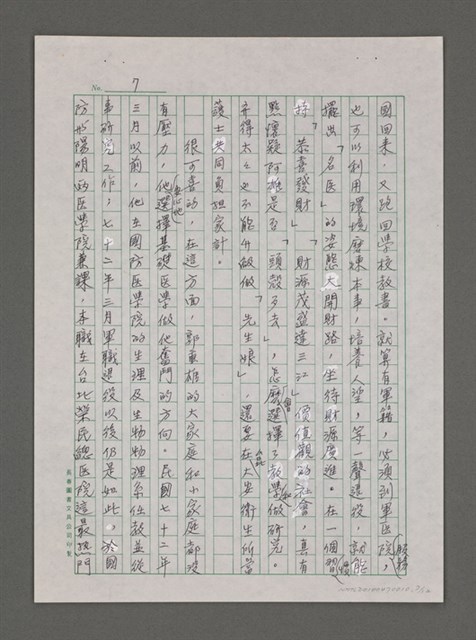 No. 7
國回來，又跑回學校教書。就算有軍籍，必須到軍医院服務，
也可以利用環境磨練本事，培養人望，等一聲退役，就能
擺出「名医」的姿態大開財路，坐待財源廣進。在一個習慣
「恭喜發財」「財源茂盛達三江」價值觀的社會，真有
點懷疑阿雄是否「頭殼歹去」，怎麼會選擇了教學和做研究。
弄得太太也不能升做做「先生娘」，還要在大安衛生所當
護士共同負担家計。
很可喜的，在這方面，郭東雄的大家庭和小家庭都沒
有壓力，他安心地選擇基礎医學做他奮鬥的方向。民國七十二年
三月以前，他在國防医學院的生理及生物物理系任教並從
事研究工作，七十二年三月軍職退役以後仍是如此，於國
防和陽明的医學院兼課，本職在台北榮民總医院這最熱門
長春圖書文具公司印製